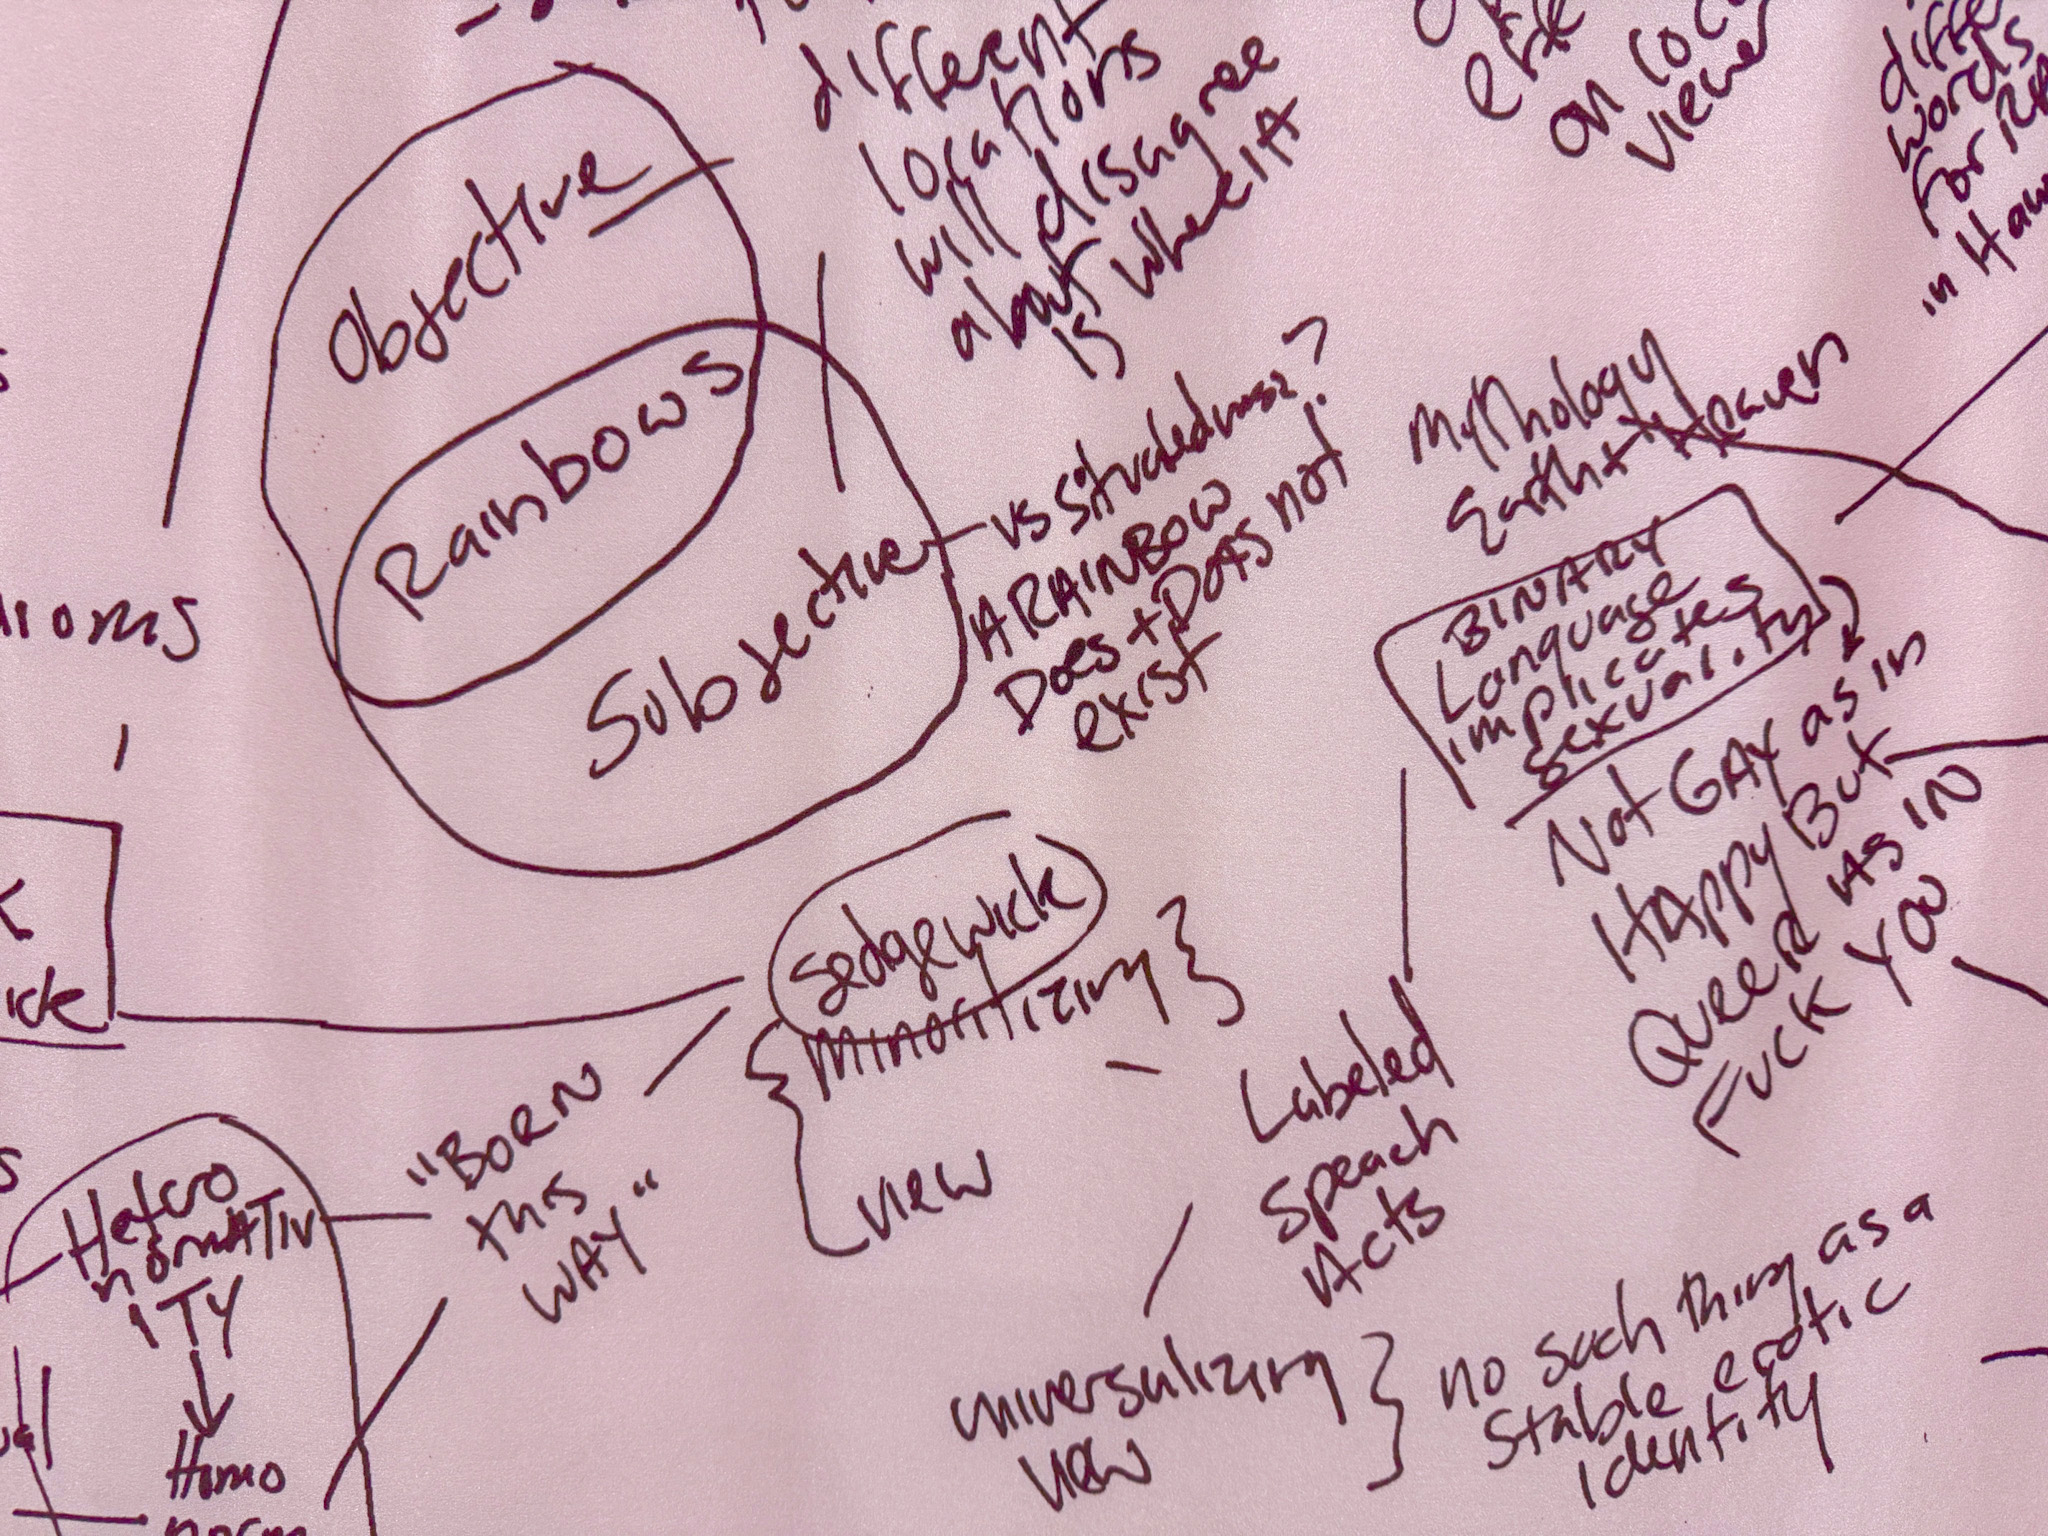 different
locations
will disagree
about where it
is
on
viewer
words
for
in
Objective
Rainbows
Subjective
vs situatedness?
A RAINBOW
Does + Does not
exist
Mythology
Earth + Heaven
BINARY
Language
implicates
sexuality
Not GAY as in
HAppy But
QueeR AS IN
FUCK YOU
Sedgewick
Minoritizing
view
"BORN
this
WAY"
Labeled
Speach
Acts
Hetro
normATIV
ITY
Homo
norm
universalizing
view
no such thing as a
Stable erotic
identity